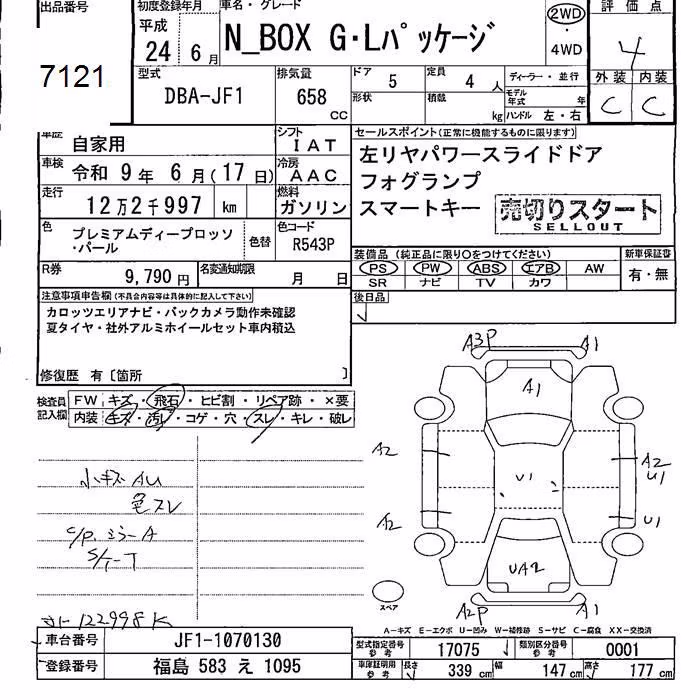 出品番号
7121
初度登録年月
平成
24 6月
車名・グレード
N_BOX G・Lパッケージ
2WD
・
4WD
評価点
4
外装 内装
C C
型式
DBA-JF1
排気量
658 CC
ドア 5
形状
定員 4人
積載 kg
ディーラー・並行
モデル年式 年
ハンドル 左・右
車歴 自家用
シフト IAT
車検 令和 9年 6月(17日)
冷房 AAC
走行 12万2千997 km
燃料 ガソリン
色 プレミアムディープロッソ
・パール
色替
色コード R543P
R券 9,790円
名変通知期限 月 日
セールスポイント(正常に機能するものに限ります)
左リヤパワースライドドア
フォグランプ
スマートキー
売切りスタート
SELLOUT
装備品 (純正品に限り○をつけてください)
PS PW ABS エアB AW
SR ナビ TV カワ
新車保証書
有・無
後日品
注意事項申告欄(不具合内容等は具体的に記入して下さい)
カロッツエリアナビ・バックカメラ動作未確認
夏タイヤ・社外アルミホイールセット車内積込
修復歴 有〔箇所 〕
検査員記入欄
FW キズ・飛石・ヒビ割・リペア跡・×要
内装 キズ・汚レ・コゲ・穴・スレ・キレ・破レ
小キズ AU
色スレ
C/P. ミラーA
122998K
A3P A1
A1
A2
A2
U1
U1
A2
U1
UA2
A2P A1
スペア
A－キズ E－エクボ U－凹み W－補修跡 S－サビ C－腐食 XX－交換済
車台番号 JF1-1070130
登録番号 福島 583 え 1095
型式指定番号 参考 17075
類別区分番号 参考 0001
車庫証明用 参考 長さ 339 cm 幅 147 cm 高さ 177 cm